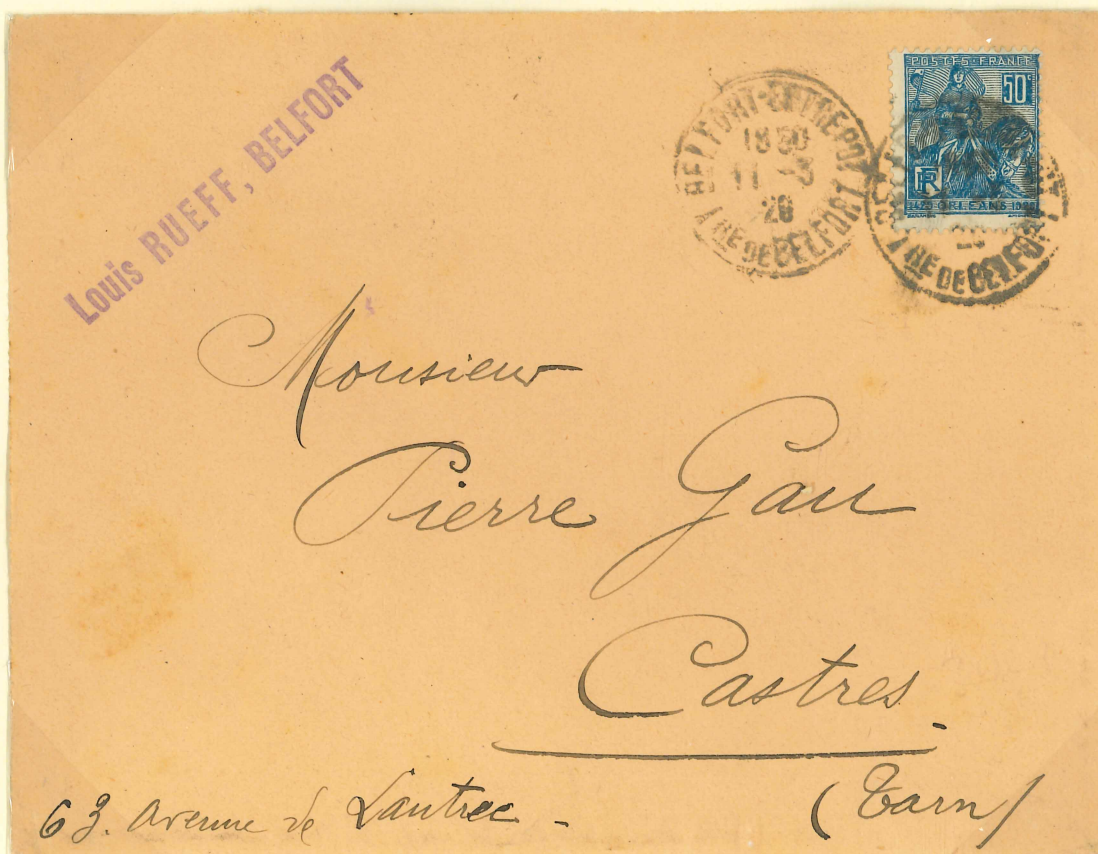 Louis RUEFF, BELFORT
BELFORT-ENTREPOT
18 30
11 -3
TRE DE BELFORT
POSTES·FRANCE
50c
RF
ORLEANS
TRE DE BELFORT
Monsieur
Pierre Gau
Castres.
(Tarn)
63. Avenue de Lautrec -